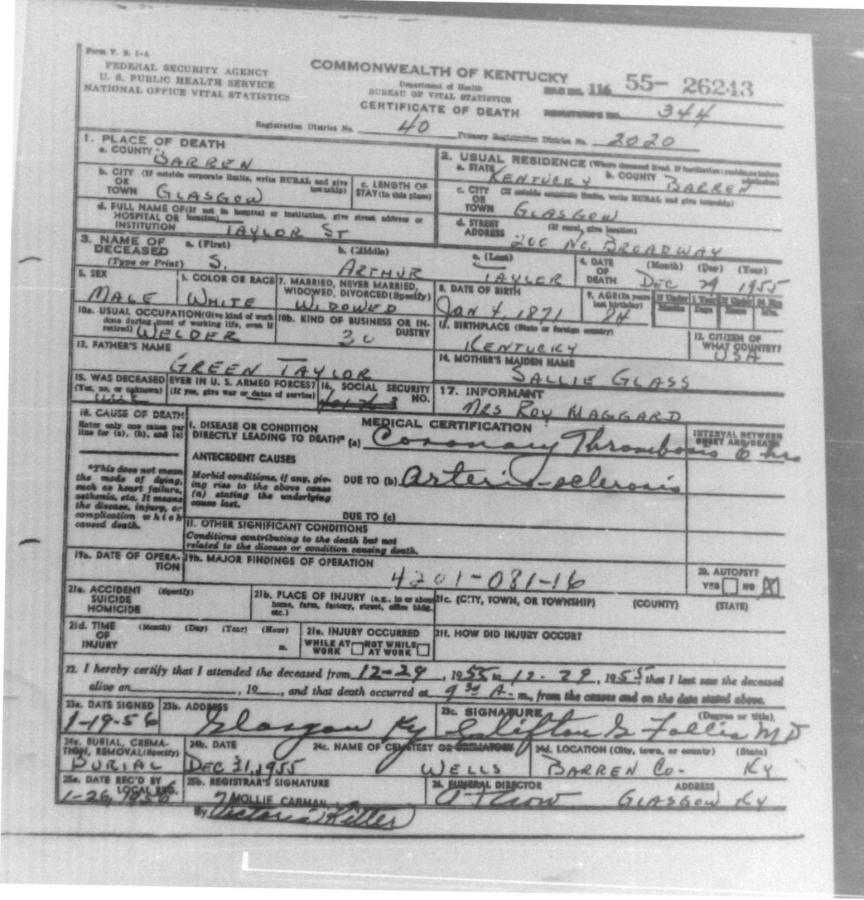 Form V. S. 1-A
FEDERAL SECURITY AGENCY
U. S. PUBLIC HEALTH SERVICE
NATIONAL OFFICE VITAL STATISTICS
COMMONWEALTH OF KENTUCKY
Department of Health
BUREAU OF VITAL STATISTICS
CERTIFICATE OF DEATH
116 55- 26243
344
Registration District No. 40 Primary Registration District No. 2020
1. PLACE OF DEATH
a. COUNTY BARREN
b. CITY (If outside corporate limits, write RURAL and give township)
OR TOWN GLASGOW
c. LENGTH OF STAY (in this place)
d. FULL NAME OF (If not in hospital or institution, give street address or location)
HOSPITAL OR INSTITUTION TAYLOR ST
2. USUAL RESIDENCE (Where deceased lived. If institution: residence before admission)
a. STATE KENTUCKY b. COUNTY BARREN
c. CITY (If outside corporate limits, write RURAL and give township)
OR TOWN GLASGOW
d. STREET ADDRESS (If rural, give location)
NO. BROADWAY
3. NAME OF DECEASED (Type or Print)
a. (First) S. b. (Middle) ARTHUR c. (Last) TAYLOR
4. DATE OF DEATH (Month) (Day) (Year) DEC 29 1955
5. SEX MALE
6. COLOR OR RACE WHITE
7. MARRIED, NEVER MARRIED, WIDOWED, DIVORCED (Specify) WIDOWED
8. DATE OF BIRTH JAN 4, 1871
9. AGE (In years last birthday) 84
10a. USUAL OCCUPATION (Give kind of work done during most of working life, even if retired) WELDER
10b. KIND OF BUSINESS OR INDUSTRY
11. BIRTHPLACE (State or foreign country) KENTUCKY
12. CITIZEN OF WHAT COUNTRY? USA
13. FATHER'S NAME
GREEN TAYLOR
14. MOTHER'S MAIDEN NAME
SALLIE GLASS
15. WAS DECEASED EVER IN U. S. ARMED FORCES?
(Yes, no, or unknown) (If yes, give war or dates of service)
16. SOCIAL SECURITY NO.
17. INFORMANT
MRS ROY MAGGARD
18. CAUSE OF DEATH
Enter only one cause per line for (a), (b), and (c)
*This does not mean the mode of dying, such as heart failure, asthenia, etc. It means the disease, injury, or complication which caused death.
MEDICAL CERTIFICATION
INTERVAL BETWEEN ONSET AND DEATH
I. DISEASE OR CONDITION DIRECTLY LEADING TO DEATH* (a) Coronary Thrombosis 6 hrs
ANTECEDENT CAUSES
Morbid conditions, if any, giving rise to the above cause (a) stating the underlying cause last.
DUE TO (b) Arterio-sclerosis
DUE TO (c)
II. OTHER SIGNIFICANT CONDITIONS
Conditions contributing to the death but not related to the disease or condition causing death.
19a. DATE OF OPERATION
19b. MAJOR FINDINGS OF OPERATION
4201-081-16
20. AUTOPSY?
YES NO X
21a. ACCIDENT SUICIDE HOMICIDE (Specify)
21b. PLACE OF INJURY (e.g., in or about home, farm, factory, street, office bldg. etc.)
21c. (CITY, TOWN, OR TOWNSHIP) (COUNTY) (STATE)
21d. TIME OF INJURY (Month) (Day) (Year) (Hour) m.
21e. INJURY OCCURRED
WHILE AT WORK NOT WHILE AT WORK
21f. HOW DID INJURY OCCUR?
22. I hereby certify that I attended the deceased from 12-29, 1955 to 12-29, 1955 that I last saw the deceased
alive on , 19 , and that death occurred at 9 30 A. m., from the causes and on the date stated above.
23a. DATE SIGNED 1-19-56
23b. ADDRESS Glasgow Ky
23c. SIGNATURE (Degree or title)
Clifton G Follis MD
24a. BURIAL, CREMATION, REMOVAL (Specify) BURIAL
24b. DATE DEC 31, 1955
24c. NAME OF CEMETERY OR CREMATORY WELLS
24d. LOCATION (City, town, or county) (State) BARREN CO- KY
25a. DATE REC'D BY LOCAL REG. 1-26, 1956
25b. REGISTRAR'S SIGNATURE
MOLLIE CARMAN
By Victoria Ritter
26. FUNERAL DIRECTOR ADDRESS
GLASGOW KY